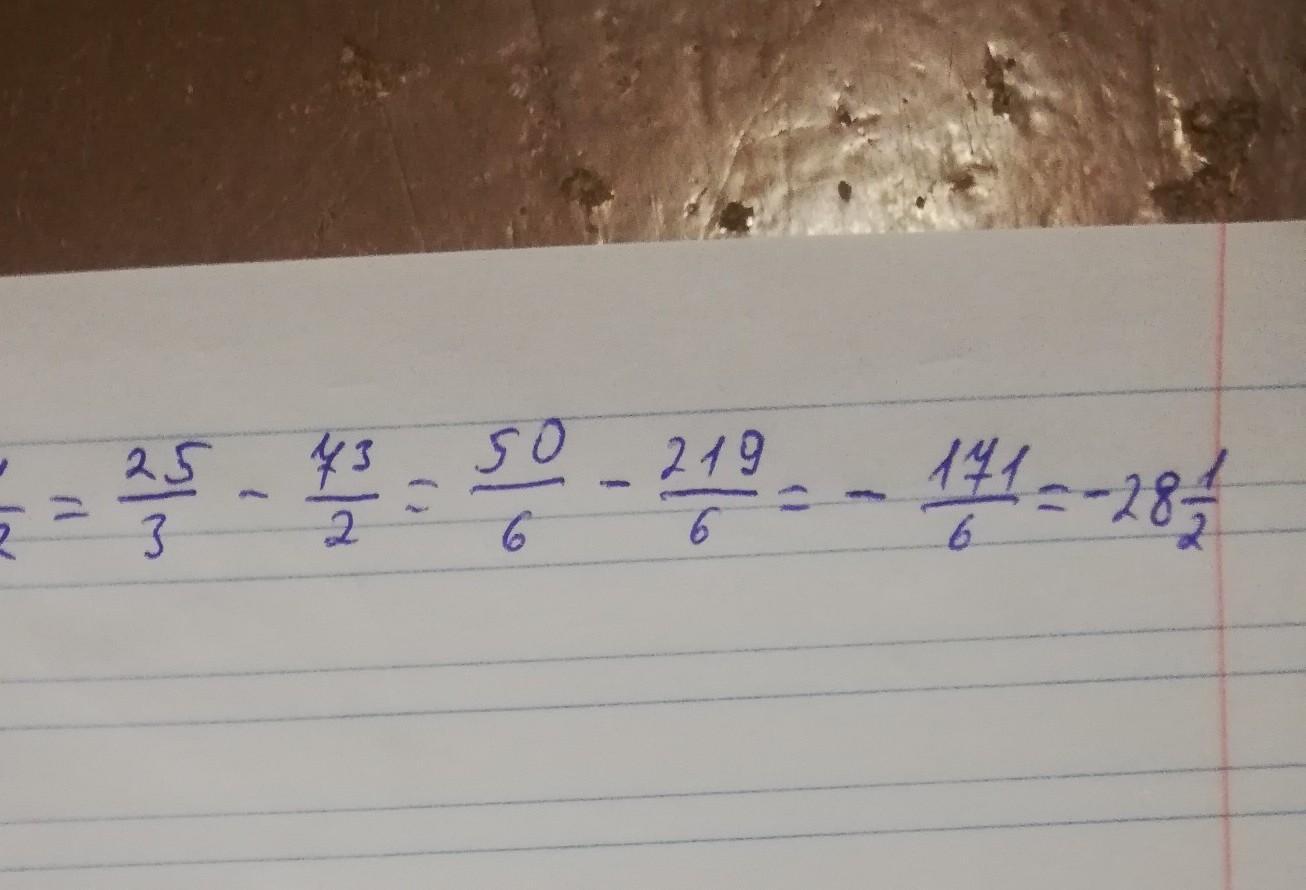 = 25/3 - 73/2 = 50/6 - 219/6 = - 171/6 = -28 1/2